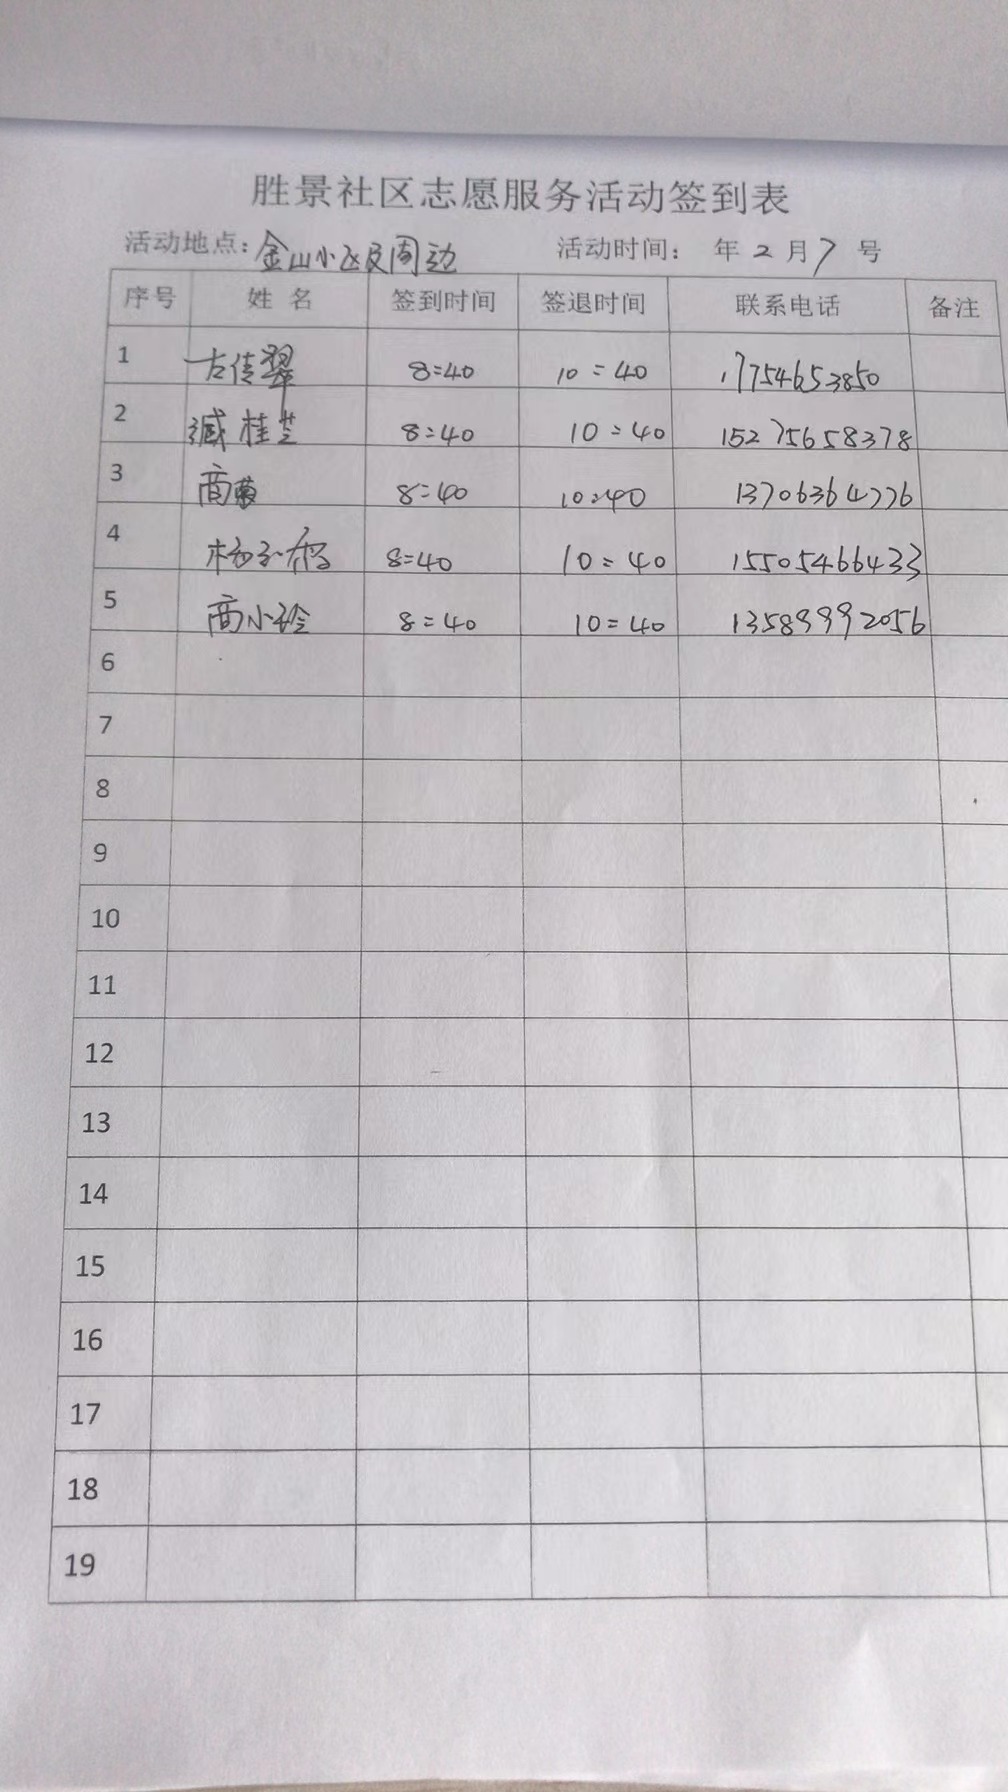 胜景社区志愿服务活动签到表
活动地点：金山小区及周边 活动时间： 年 2 月 7 号
序号 姓 名 签到时间 签退时间 联系电话 备注
1 古传翠 8:40 10:40 17754653850
2 臧桂芝 8:40 10:40 15275658378
3 商菊 8:40 10:40 13706364776
4 8:40 10:40 15505466433
5 商小玲 8:40 10:40 13589992056
6
7
8
9
10
11
12
13
14
15
16
17
18
19